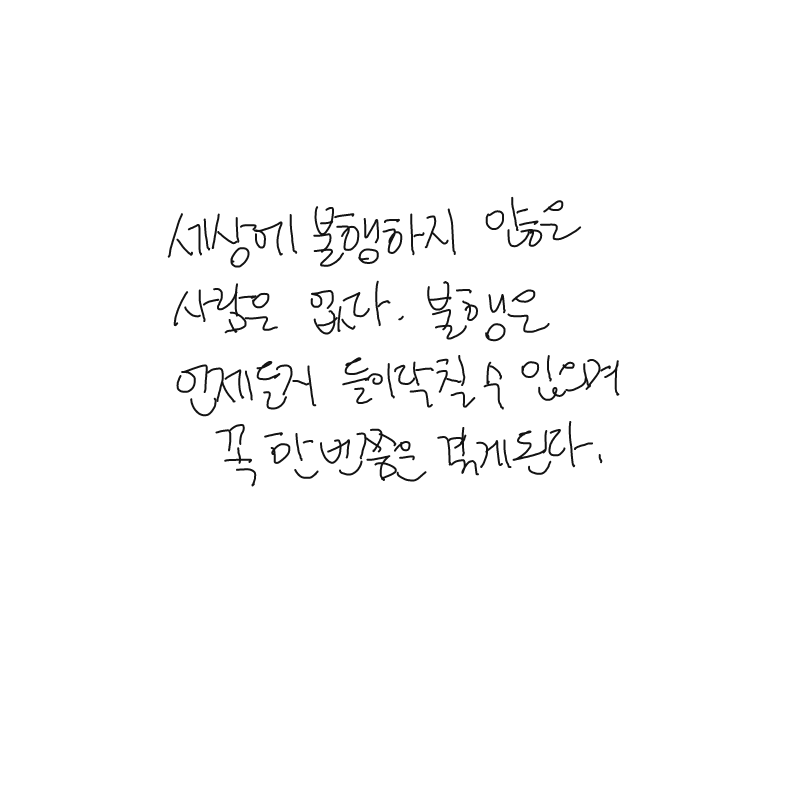 세상에 불행하지 않은
사람은 없다. 불행은
언제든지 들이닥칠 수 있으며
꼭 한 번쯤은 겪게된다.